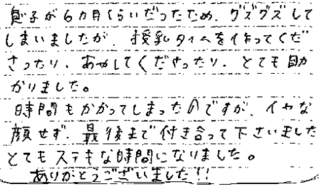 息子が6カ月くらいだったため、グズグズして
しまいましたが、授乳タイムを作ってくだ
さったり、あやしてくださったり、とても助
かりました。
時間もかかってしまったのですが、イヤな
顔せず、最後まで付き合って下さいました
とてもステキな時間になりました。
ありがとうございました!!